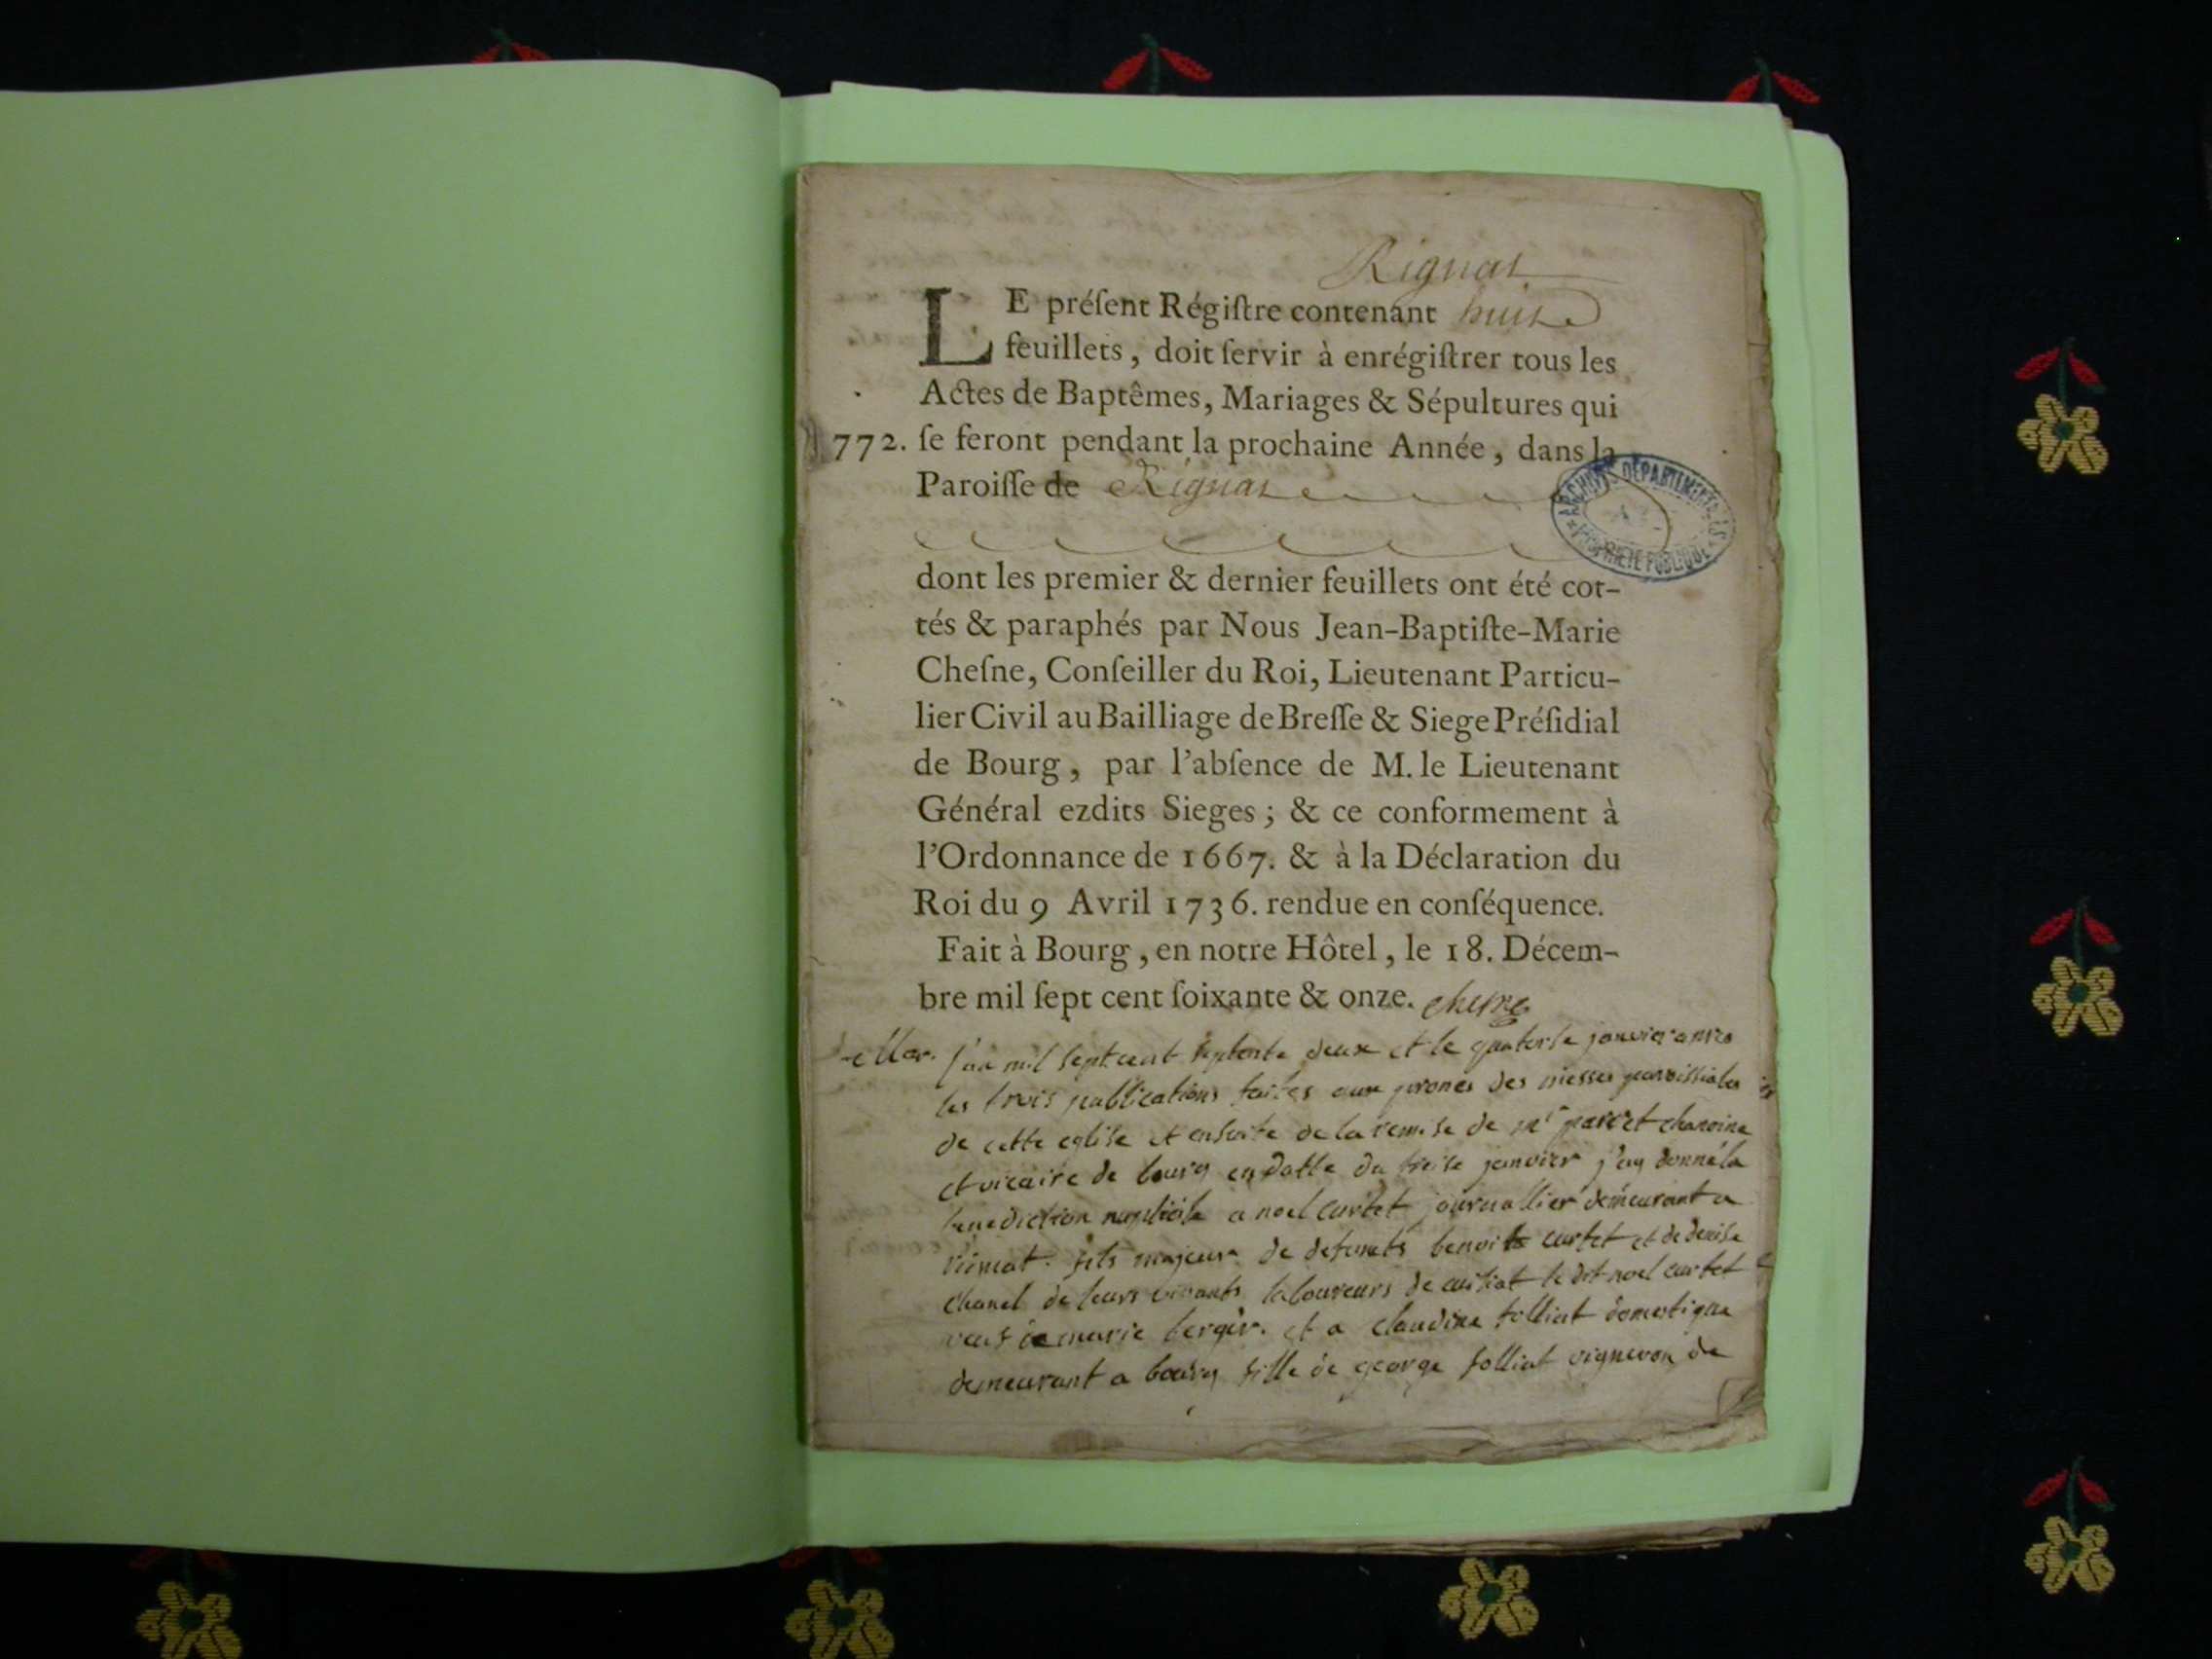 Rignat
LE préſent Régiſtre contenant huit
feuillets, doit ſervir à enrégiſtrer tous les
Actes de Baptêmes, Mariages & Sépultures qui
1772. ſe feront pendant la prochaine Année, dans la
Paroiſſe de Rignat
ARCHIVES DÉPARTEMENTALES
PROPRIÉTÉ PUBLIQUE
dont les premier & dernier feuillets ont été cot-
tés & paraphés par Nous Jean-Baptiſte-Marie
Cheſne, Conſeiller du Roi, Lieutenant Particu-
lier Civil au Bailliage de Breſſe & Siege Préſidial
de Bourg, par l'abſence de M. le Lieutenant
Général ezdits Sieges; & ce conformement à
l'Ordonnance de 1667. & à la Déclaration du
Roi du 9 Avril 1736. rendue en conſéquence.
Fait à Bourg, en notre Hôtel, le 18. Décem-
bre mil ſept cent ſoixante & onze. chesne
l'an mil sept cent septente deux et le quatorse janvier apres
les trois publications faites aux prones des messes paroissiales
de cette eglise et ensuite de la remise de mr chanoine
et vicaire de bourg en datte du treise janvier j'ay donné la
benediction nuptiale a noel curtet journallier demeurant a
fils majeur de defunts benoit curtet et de denise
chanel de leurs vivants laboureurs de le dit noel curtet
veuf de marie berger. et a claudine folliat domestique
demeurant a bourg fille de george folliat vigneron de